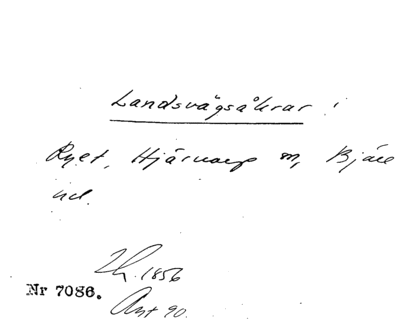 Landsvägsåkrar i
Ryet, Hjärnarp sn, Bjäre
hd.
Lh. 1856
Nr 7086.
Ant 90.